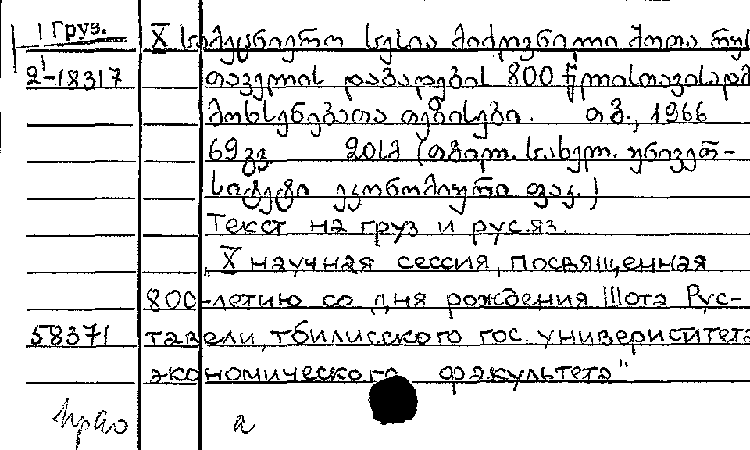 1 Груз. X სამეცნიერო სესია მიძღვნილი შოთა რუს
2-18317 თაველის დაბადების 800 წლისთავისადმ
მოხსენებათა თეზისები. თბ., 1966
69 გვ. 20სმ (თბილ. სახელ. უნივერ-
სიტეტი ეკონომიური ფაკ.)
Текст на груз и рус.яз.
„X научная сессия, посвященная
800-летию со дня рождения Шота Рус-
58371 тавели, тбилисского гос. университета
экономического факультета"
а